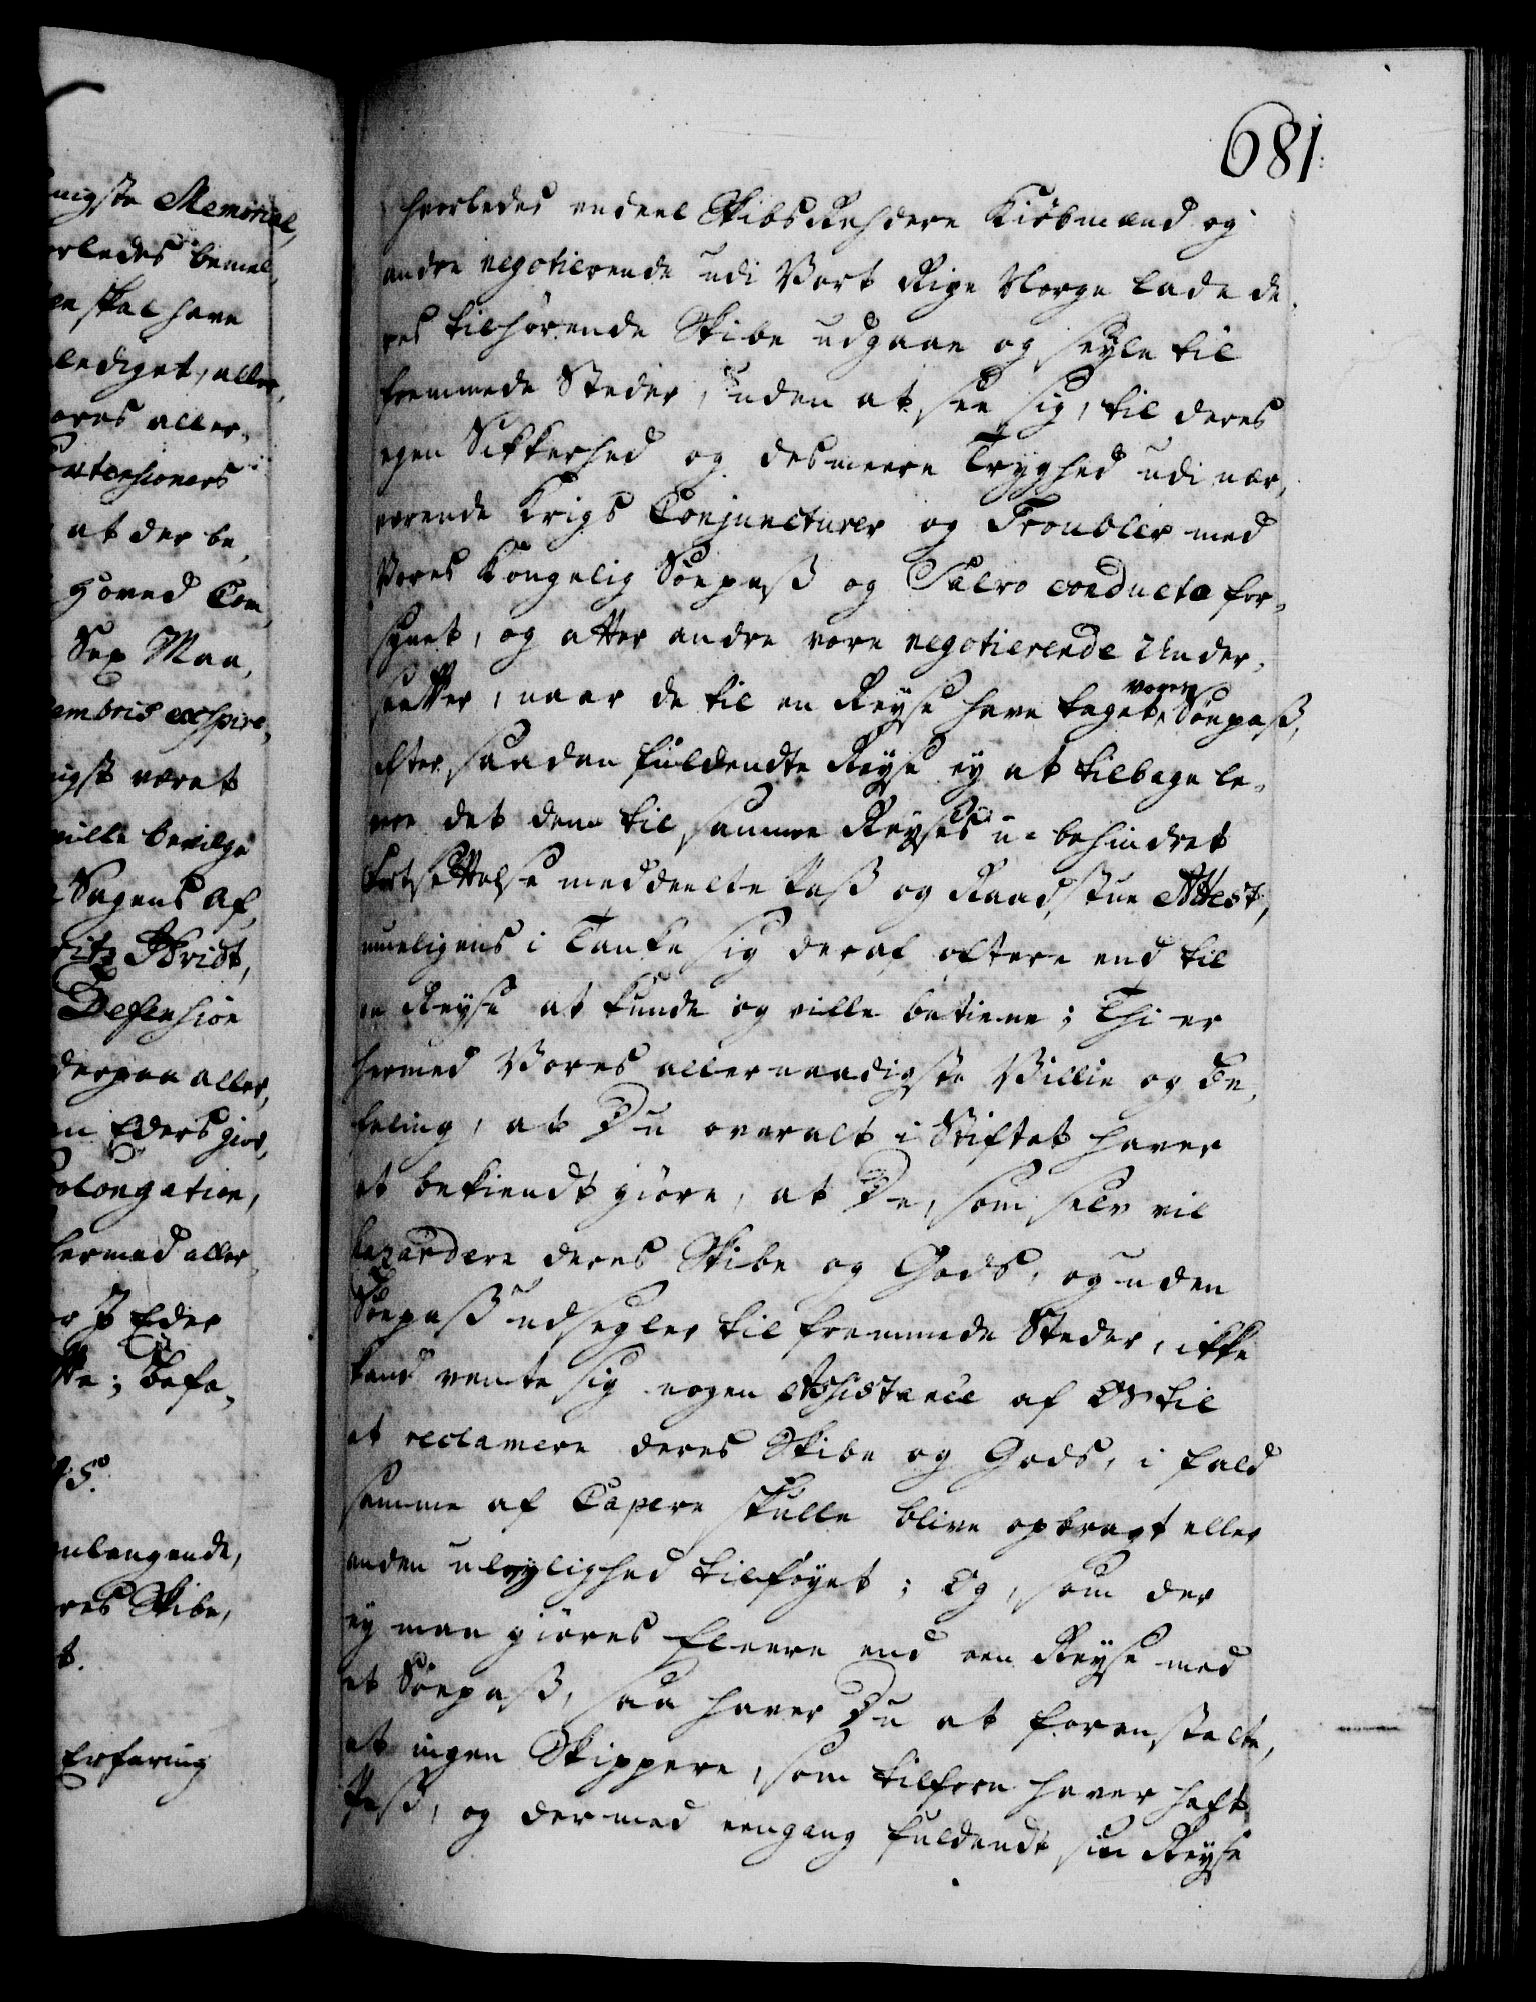 nigste Memorial,
orledes bemel,
en skal have
lediget, aller,
ores aller,
Extensioners
at der be,
Hoved Com
Sex Maa,
embris exspire,
nigst været
ville bevilge
Sagens Af,
Defension
derpaa aller,
en Eders giør,
olongation,
hermed aller,
J Eder
Befa,
anlangende,
res Skibe,
Erfaring
681.
hvorledes endeel Skibs Rehdere Kiøbmænd og
andre negotierende udi Vort Rige Norge lade de,
res tilhørende Skibe udgaae og seyle til
fremmede Steder, uden at see sig, til deres
egen Sikkerhed og desmeere Tryghed udi nær,
værende Krigs Conjuncturer og Troubler med
Vores Kongelig Søepass og Salvo conducto for,
synet, og atter andre vore negotierende Under,
saatter, naar de til en Reyse have taget vores Søepass,
efter saadan fuldendte Reyse ey at tilbage le,
vere det dem til samme Reyses u-behindret
Fortsættelse meddeelte Pass og Raadstue Attest,
mueligens i Tanke sig deraf oftere end til
en Reyse at kunde og ville betiene; Thi er
hermed Vores allernaadigste Villie og Be,
faling, at Du overalt i Stiftet haver
at bekiendtgiøre, at De, som selv vil
hazardere deres Skibe og Gods, og uden
Søepass udsegler til fremmede Steder, ikke
kand vente sig nogen Assistance af Os til
at reclamere deres Skibe og Gods, i fald
samme af Capere skulle blive opbragt eller
anden uleylighed tilføyet; Og, som der
ey maa giøres fleere end een Reyse med
et Søepass, saa haver Du at foranstalte,
at ingen Skippere, som tilforn haver haft
Pass, og dermed eengang fuldendt sin Reyse